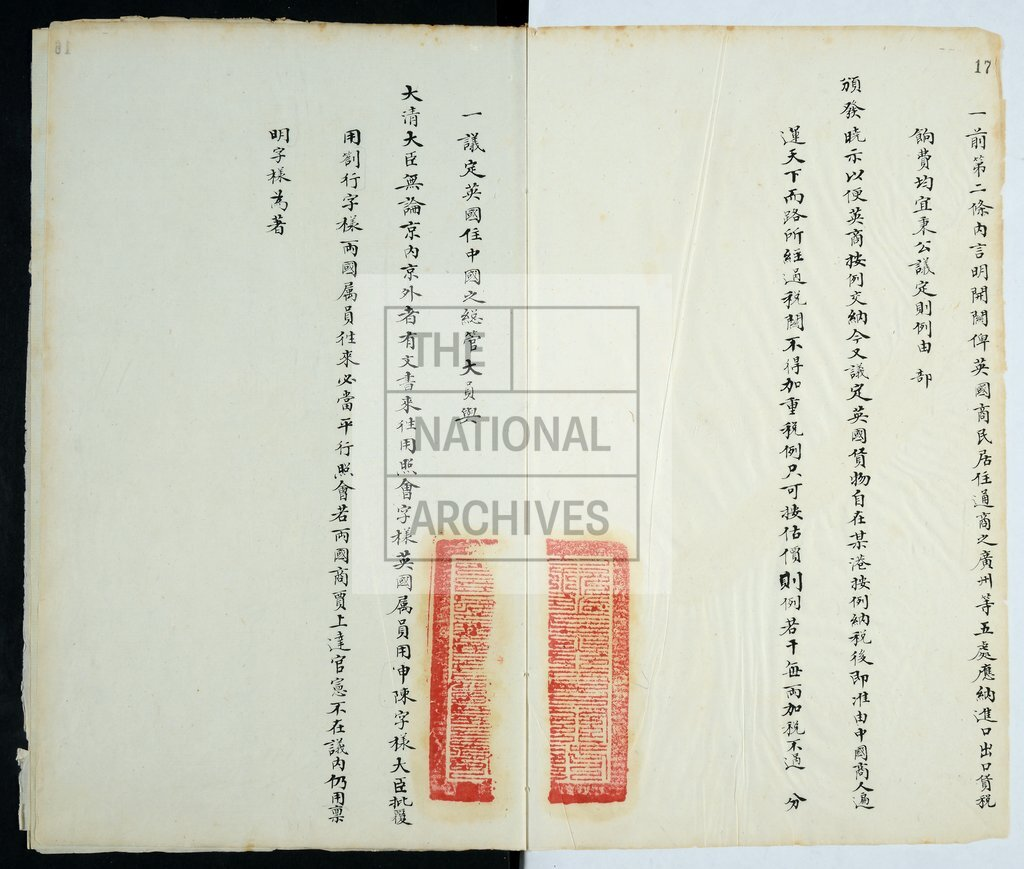 17
一前第二條內言明開關俾英國商民居住通商之廣州等五處應納進口出口貨稅
餉費均宜秉公議定則例由 部
頒發曉示以便英商按例交納今又議定英國貨物自在某港按例納稅後即准由中國商人遍
運天下而路所經過稅關不得加重稅例只可按估價則例若干每兩加稅不過 分
一議定英國住中國之總管大員與
大清大臣無論京內京外者有文書來往用照會字樣英國屬員用申陳字樣大臣批覆
用劄行字樣兩國屬員往來必當平行照會若兩國商賈上達官憲不在議內仍用稟
明字樣為著
16
THE
NATIONAL
ARCHIVES